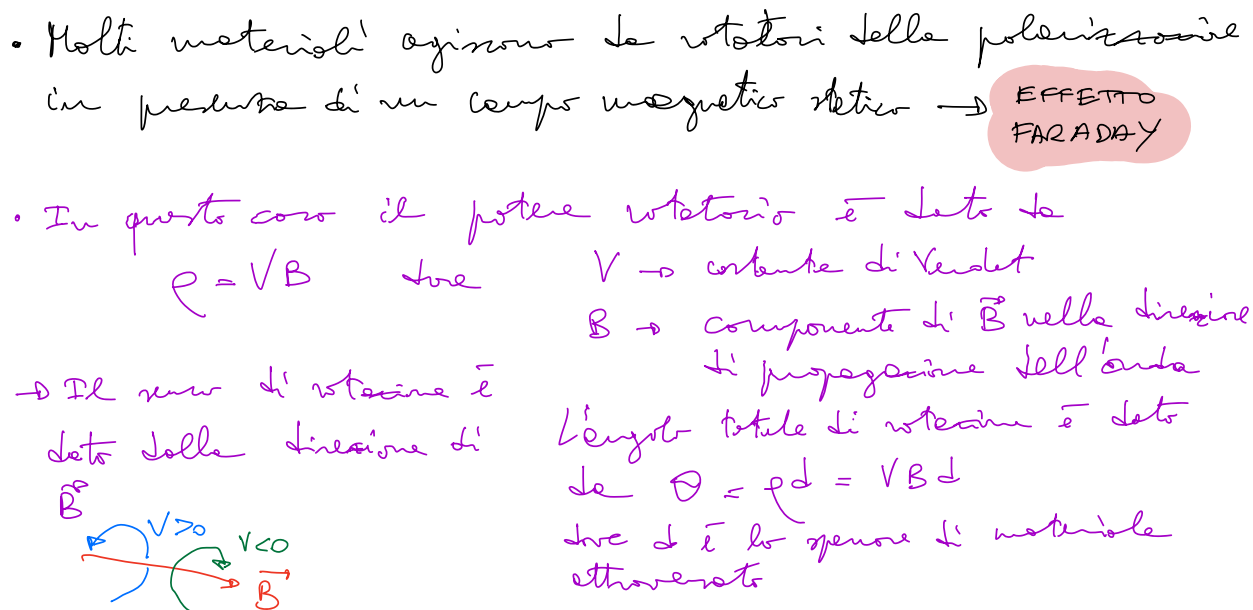 • Molti materiali agiscono da rotatori della polarizzazione
in presenza di un campo magnetico statico → EFFETTO
FARADAY
• In questo caso il potere rotatorio è dato da
ρ = VB dove
V → costante di Verdet
B → componente di B⃗ nella direzione
di propagazione dell'onda
→ Il senso di rotazione è
dato dalla direzione di
B⃗
V>0
V<0
B⃗
L'angolo totale di rotazione è dato
da θ = ρd = VBd
dove d è lo spessore di materiale
attraversato